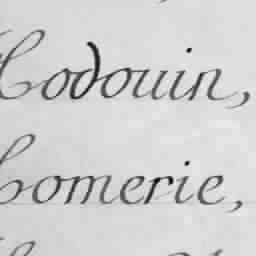 Hodouin,
Lomerie,